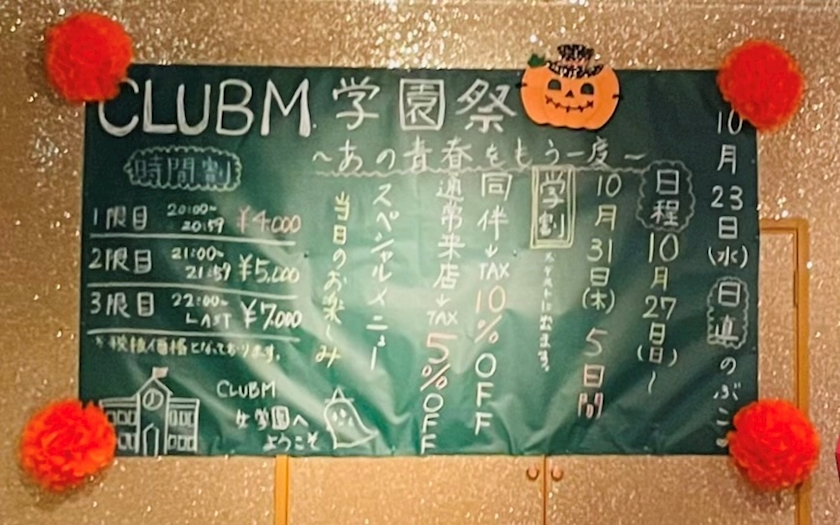 CLUBM 学園祭
〜あの青春をもう一度〜
10月23日(水)
日直 のぶこ
日程
10月27日(日)〜
10月31日(木) 5日間
学割
同伴→TAX10%OFF
通常来店→TAX5%OFF
スペシャルメニュー
当日のお楽しみ
時間割
1限目 20:00~20:59 ¥4,000
2限目 21:00~21:59 ¥5,000
3限目 22:00~LAST ¥7,000
※税抜価格となっております。
CLUBM
学園へ
ようこそ